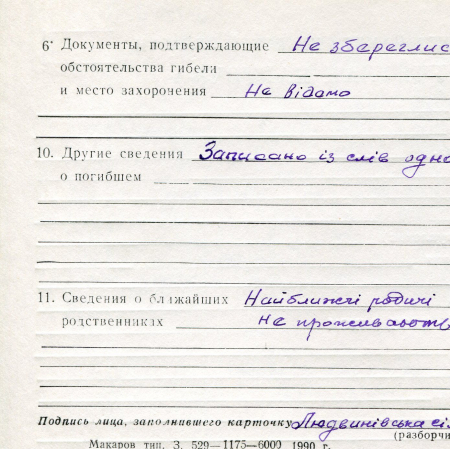 6* Документы, подтверждающие Не збереглис
обстоятельства гибели
и место захоронения Не відамо
10. Другие сведения Записано із слів одно
о погибшем
11. Сведения о ближайших Найближчі родичі
родственниках не проживають
Подпись лица, заполнившего карточку Людвинівська сіл
(разборчи
Макаров тип. З. 529—1175—6000 1990 г.